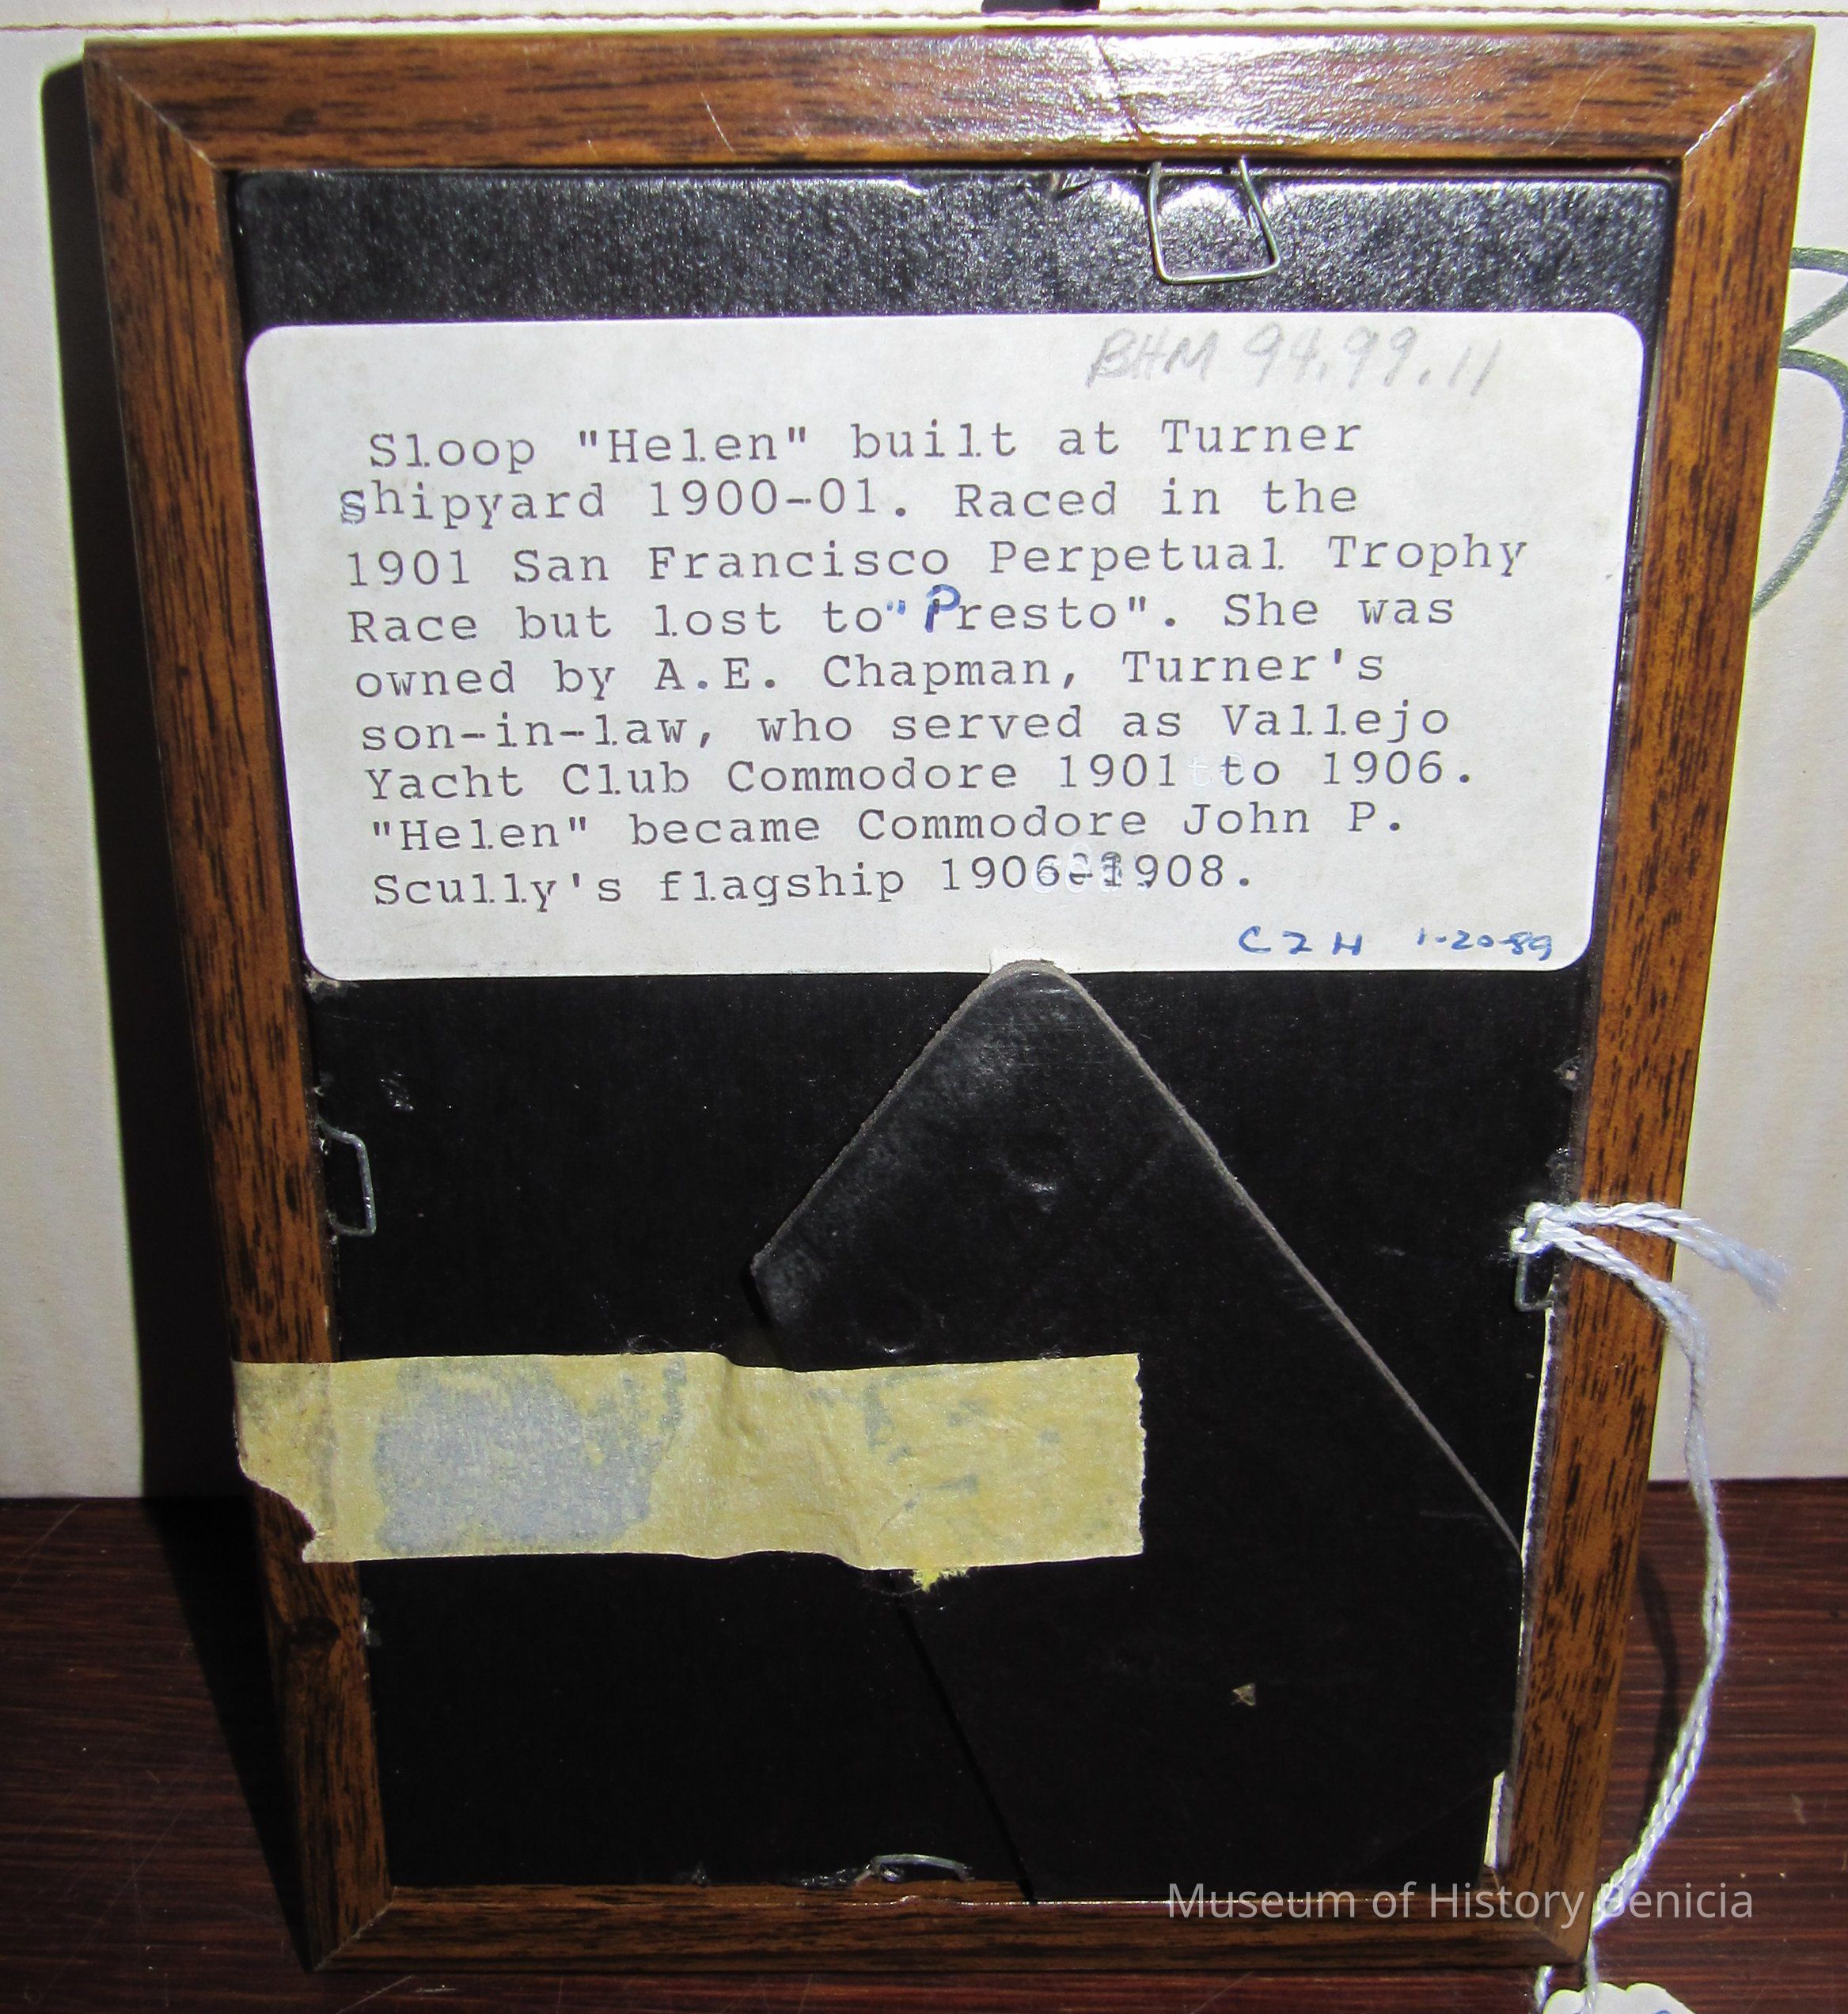 BHM 94.99.11
Sloop "Helen" built at Turner
shipyard 1900-01. Raced in the
1901 San Francisco Perpetual Trophy
Race but lost to "Presto". She was
owned by A.E. Chapman, Turner's
son-in-law, who served as Vallejo
Yacht Club Commodore 1901 to 1906.
"Helen" became Commodore John P.
Scully's flagship 1906-1908.
1-20-89
Museum of History Benicia